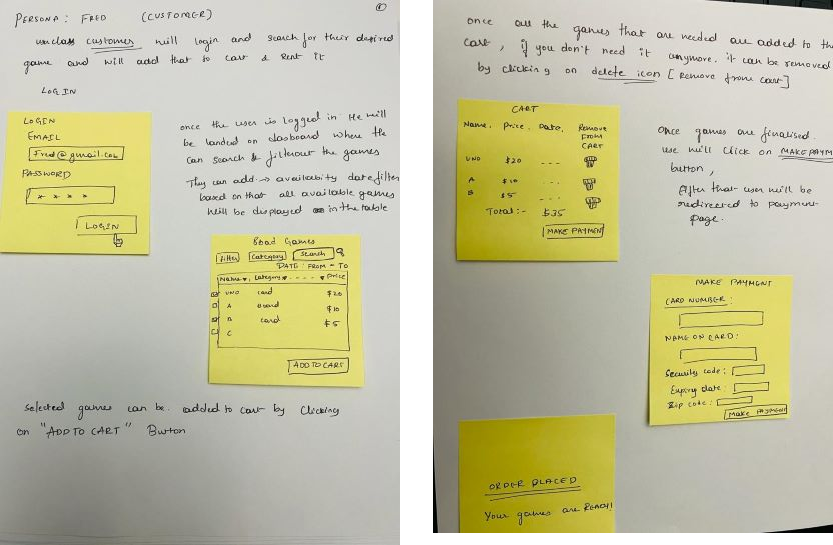 PERSONA: FRED (CUSTOMER)
customer will login and search for their desired
game and will add that to cart & Rent it
LOGIN
LOGIN
EMAIL
Fred@gmail.com
PASSWORD
* * * *
LOGIN
once the user is logged in. He will
be landed on dasboard where He
can search & filterout the games
They can add → availabity date filter
based on that all available games
will be displayed in the table
Board Games
filter Category Search
DATE: FROM - TO
Name, Category - - - - Price
UNO card $20
A Board $10
B card $5
C
ADD TO CART
selected games can be added to cart by clicking
on "ADD TO CART" Button
once all the games that are needed are added to the
cart, if you don't need it anymore. it can be removed
by clicking on delete icon [Remove from cart]
CART
Name. Price. Date. Remove
FROM
CART
UNO $20 - - -
A $10 - - -
B $5 - - -
Total:- $35
MAKE PAYMEN
Once games are finalised.
use will click on MAKE PAYM
button,
After that user will be
redirected to payment
page.
MAKE PAYMENT
CARD NUMBER:
NAME ON CARD:
Security code:
Expiry date:
Zip code:
MAKE PAYMENT
ORDER PLACED
Your games are READY!